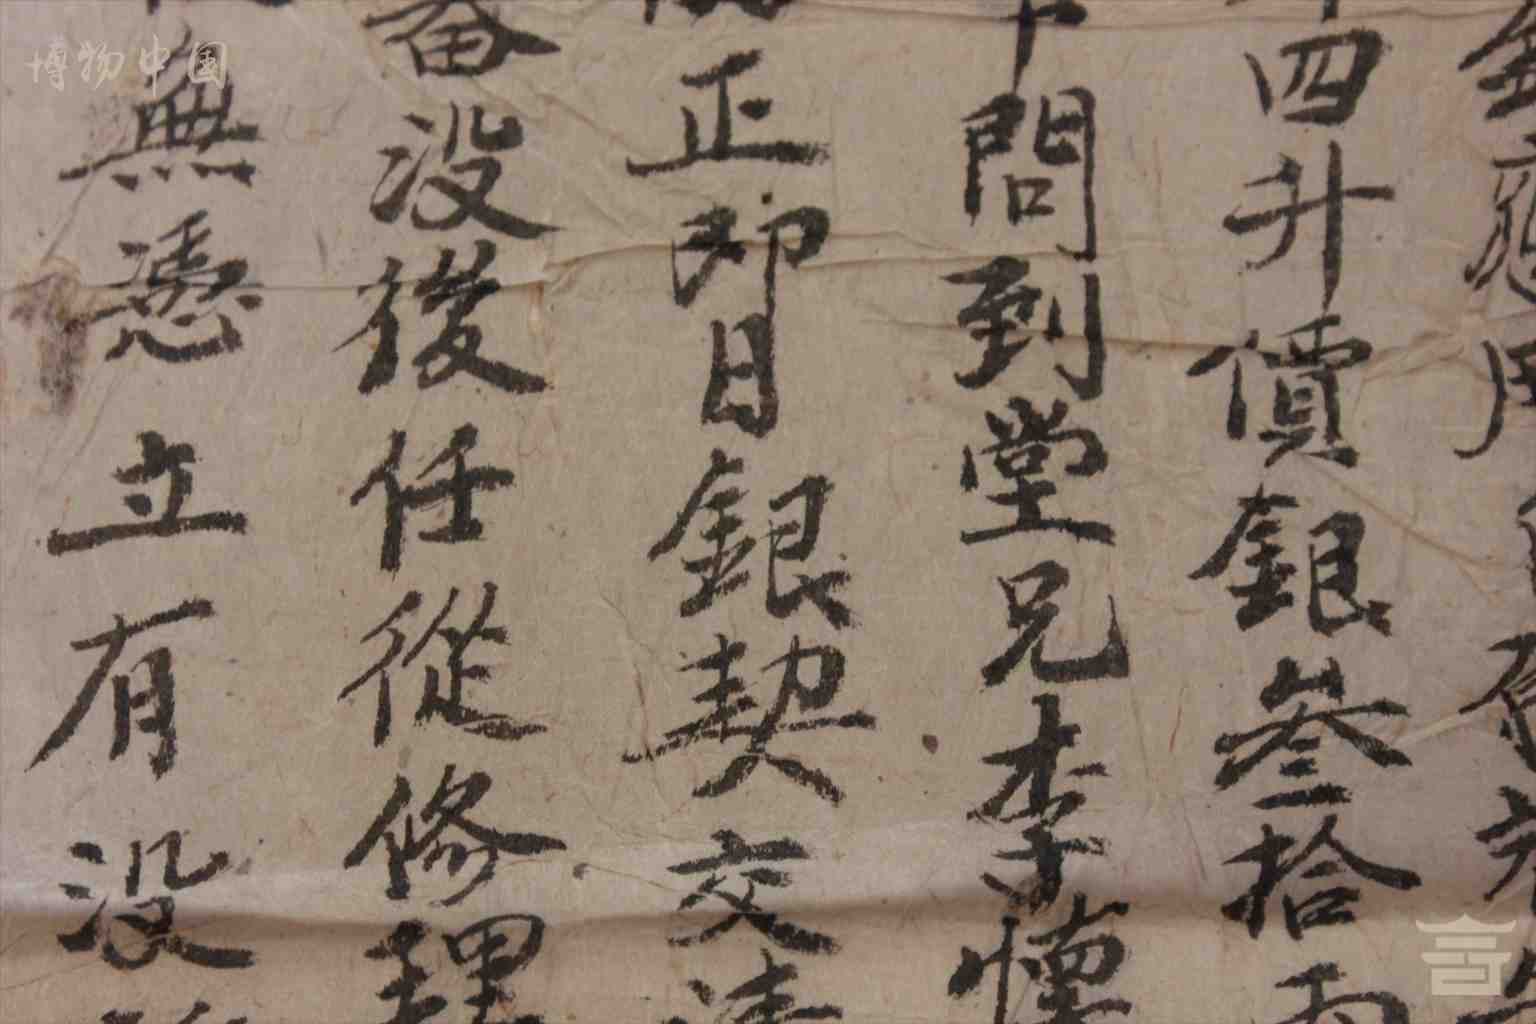 博物中国
應用
四升價銀叁拾兩
問到堂兄李懷
正即日銀契交
畨没後任從修理
無憑立有没